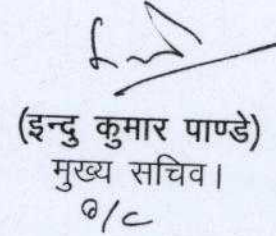 (इन्दु कुमार पाण्डे)
मुख्य सचिव।